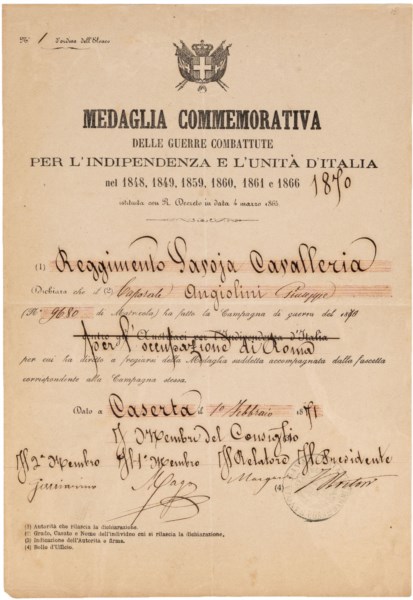 N° 1 d'ordine dell'Elenco
MEDAGLIA COMMEMORATIVA
DELLE GUERRE COMBATTUTE
PER L'INDIPENDENZA E L'UNITÀ D'ITALIA
nel 1848, 1849, 1859, 1860, 1861 e 1866 1870
istituita con R. Decreto in data 4 marzo 1865.
(1) Reggimento Savoja Cavalleria
Dichiara che il (2) Caporale Angiolini Giuseppe
(N° 9680 di Matricola) ha fatto la Campagna di guerra del 1870
per l'Indipendenza d'Italia
per l'occupazione di Roma
per cui ha diritto a fregiarsi della Medaglia suddetta accompagnata dalla fascetta
corrispondente alla Campagna stessa.
Dato a Caserta il 1° Febbraio 1871
I Membri del Consiglio
Il 2° Membro Il 1° Membro Il Relatore Il Presidente
(4)
(1) Autorità che rilascia la dichiarazione.
(2) Grado, Casato e Nome dell'individuo cui si rilascia la dichiarazione.
(3) Indicazione dell'Autorità e firma.
(4) Bollo d'Ufficio.